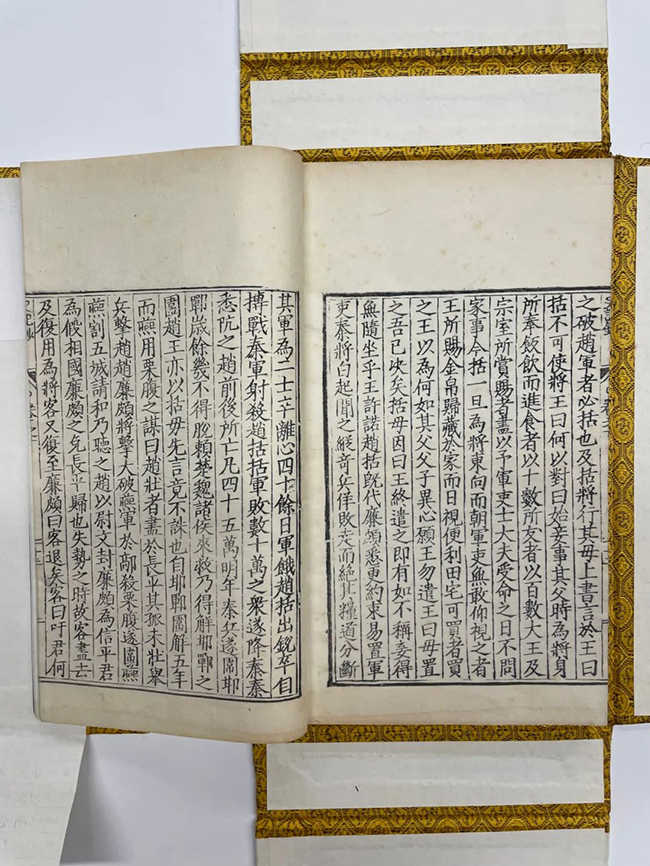 之破趙軍者必括也及括將行其母上書言於王曰
括不可使將王曰何以對曰始妾事其父時為將身
所奉飯飲而進食者以十數所友者以百數大王及
宗室所賞賜者盡以予軍吏士大夫受命之日不問
家事今括一旦為將東向而朝軍吏無敢仰視之者
王所賜金帛歸藏於家而日視便利田宅可買者買
之王以為何如其父父子異心願王勿遣王曰母置
之吾已决矣括母因曰王終遣之即有如不稱妾得
無隨坐乎王許諾趙括既代廉頗悉更約束易置軍
吏秦將白起聞之縱奇兵佯敗走而絕其糧道分斷
其軍為二士卒離心四十餘日軍餓趙括出銳卒自
搏戰秦軍射殺趙括括軍敗數十萬之衆遂降秦秦
悉阬之趙前後所亡凡四十五萬明年秦兵遂圍邯
鄲歲餘幾不得脫賴楚魏諸侯來救乃得解邯鄲之
圍趙王亦以括母先言竟不誅也自邯鄲圍解五年
而燕用栗腹之謀曰趙壯者盡於長平其孤未壯舉
兵擊趙趙廉頗將擊大破燕軍於鄗殺栗腹遂圍燕
燕割五城請和乃聽之趙以尉文封廉頗為信平君
為假相國廉頗之免長平歸也失勢之時故客盡去
及復用為將客又復至廉頗曰客退矣客曰吁君何